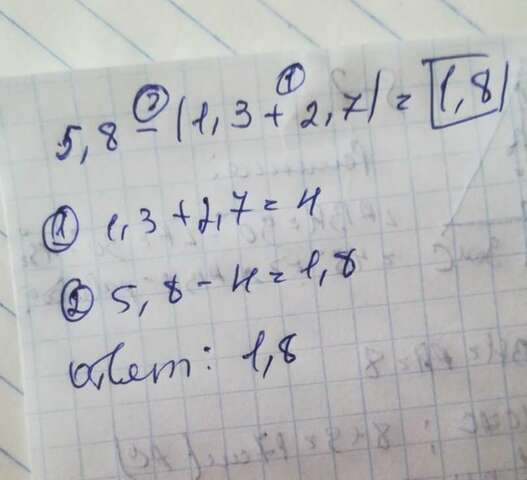 5,8 - (1,3 + 2,7) = 1,8
① 1,3 + 2,7 = 4
② 5,8 - 4 = 1,8
ответ: 1,8